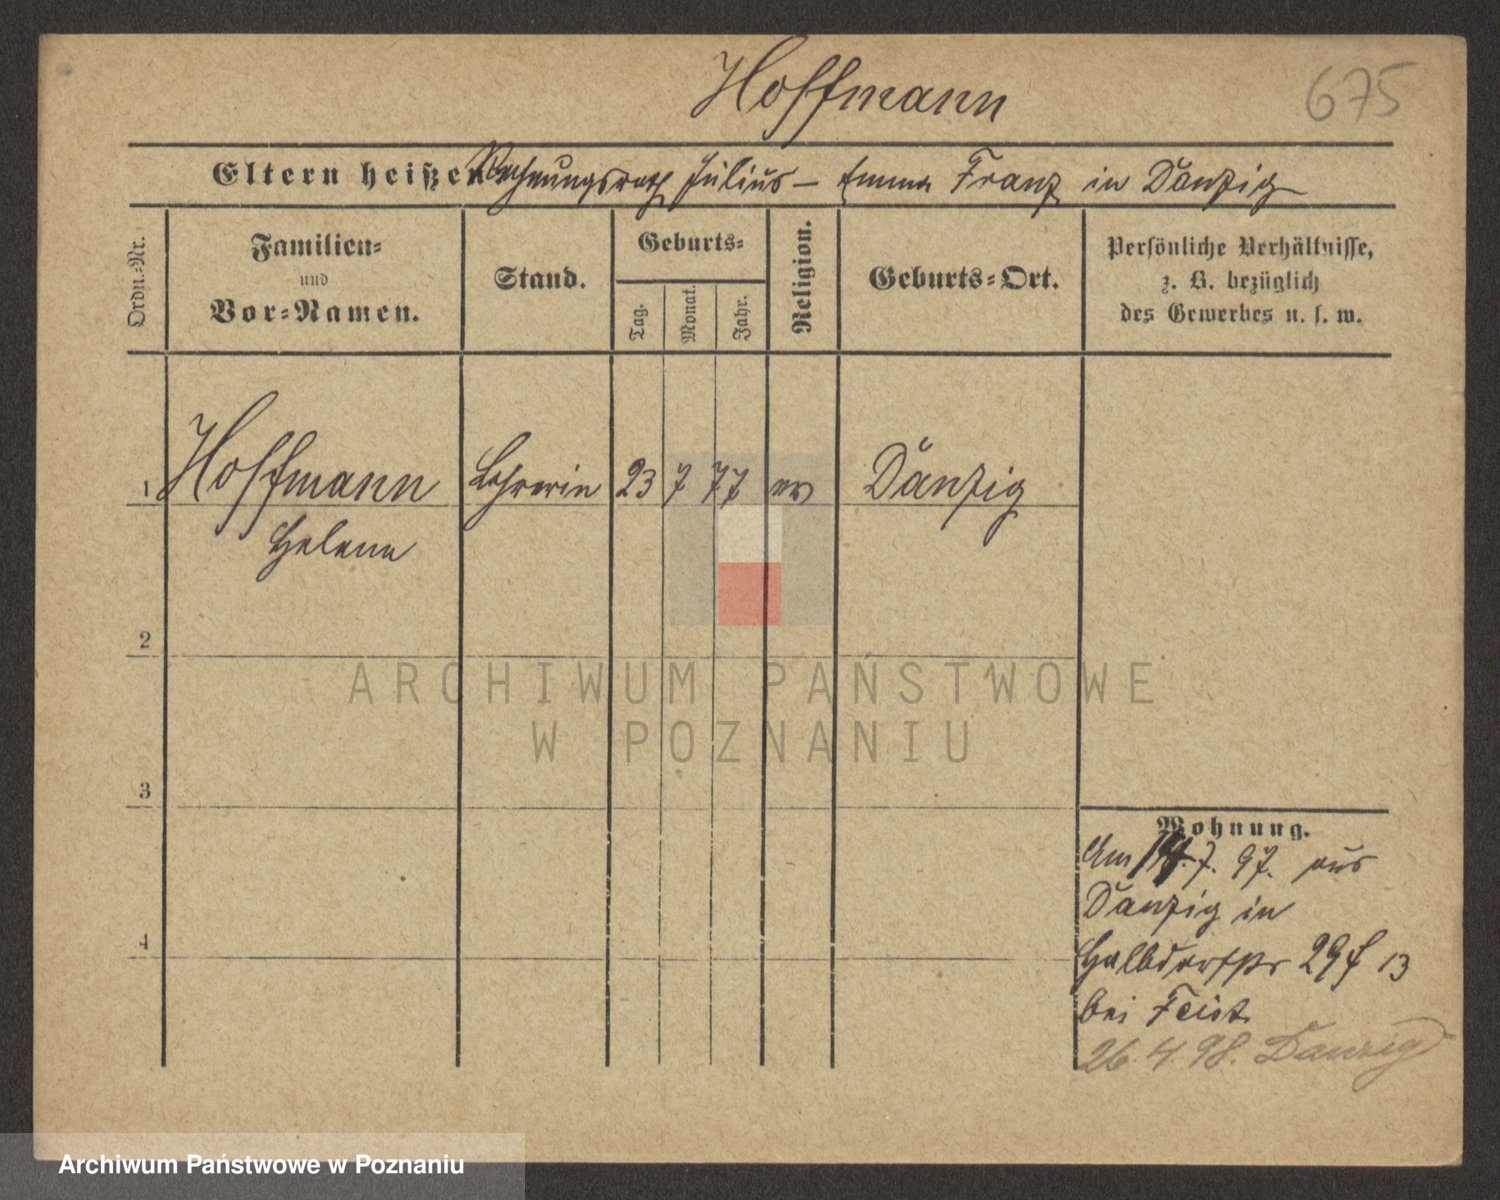 Hoffmann
675
Eltern heißen Rechnungsrath Julius – Emma Franz in Danzig
Ordn.-Nr.
Familien-
und
Vor-Namen.
Stand.
Geburts-
Tag.
Monat.
Jahr.
Religion.
Geburts-Ort.
Persönliche Verhältnisse,
z. B. bezüglich
des Gewerbes u. s. w.
1 Hoffmann Lehrerin 23 7 77 ev Danzig
Helene
2
3
4
Wohnung.
Am 14.7.97. aus
Danzig in
Halbdorfstr 29 13
bei Feist
26.4.98. Danzig
ARCHIWUM PAŃSTWOWE
W POZNANIU
Archiwum Państwowe w Poznaniu